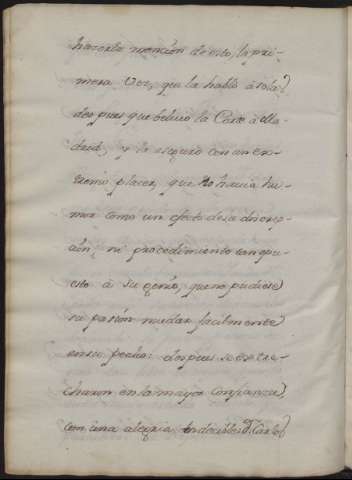 hazerle mencion de esto, la pri-
mera Vez, que la hablò à sola
despues que bolviò la Corte à Ma-
drid; y la asegurò con un ex-
tremo placer, que no havia hu-
mor como un efecto desa
aun, ni procedimiento tan opu-
esto à su genio, que no pudiese
su pasion mudar facilmente
en su pecho: despues se estre-
charon en la mayor confianza,
con una alegria indecible: Dn. Carlos